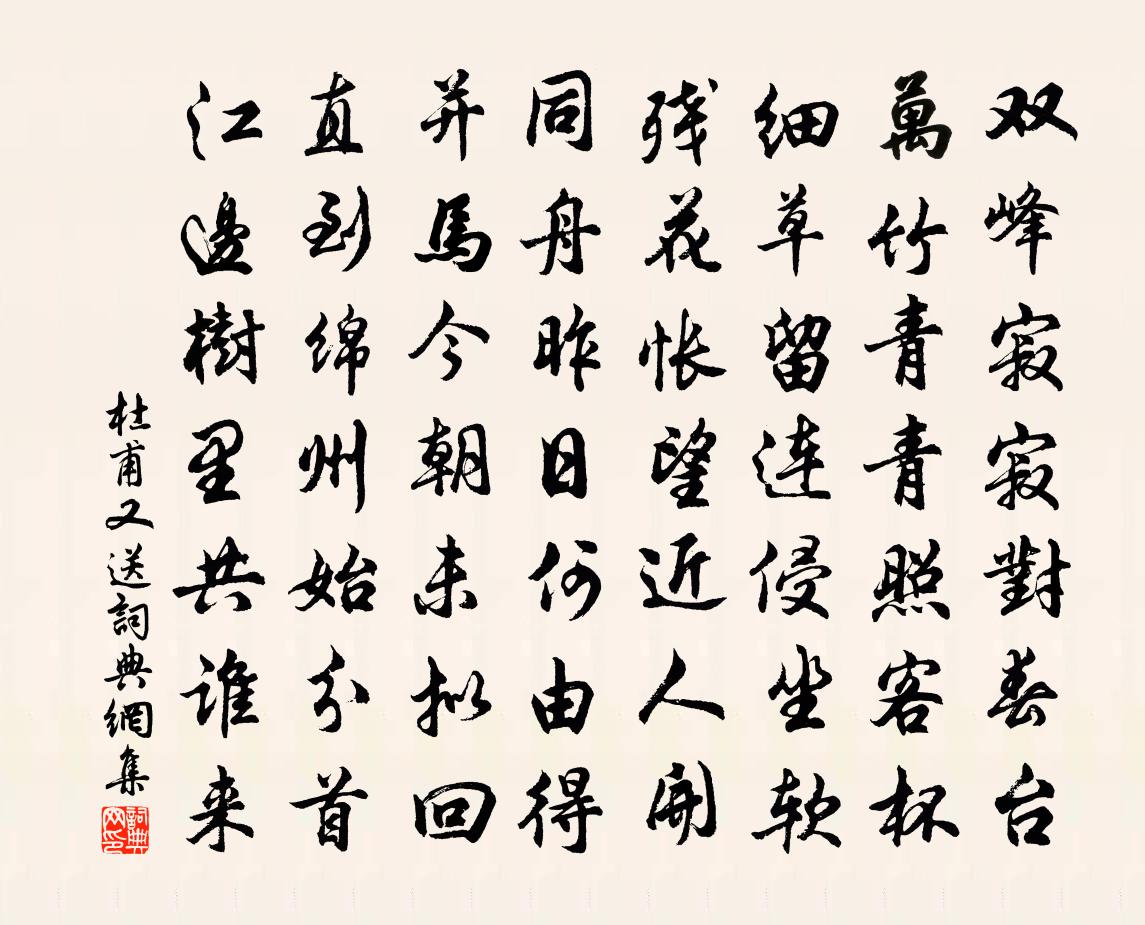 双峰寂寂對春台
萬竹青青照客杯
细草留连侵坐软
残花怅望近人開
同舟昨日何由得
并馬今朝未拟回
直到绵州始分首
江邊樹里共谁来
杜甫又送詞典網集
詞典网印